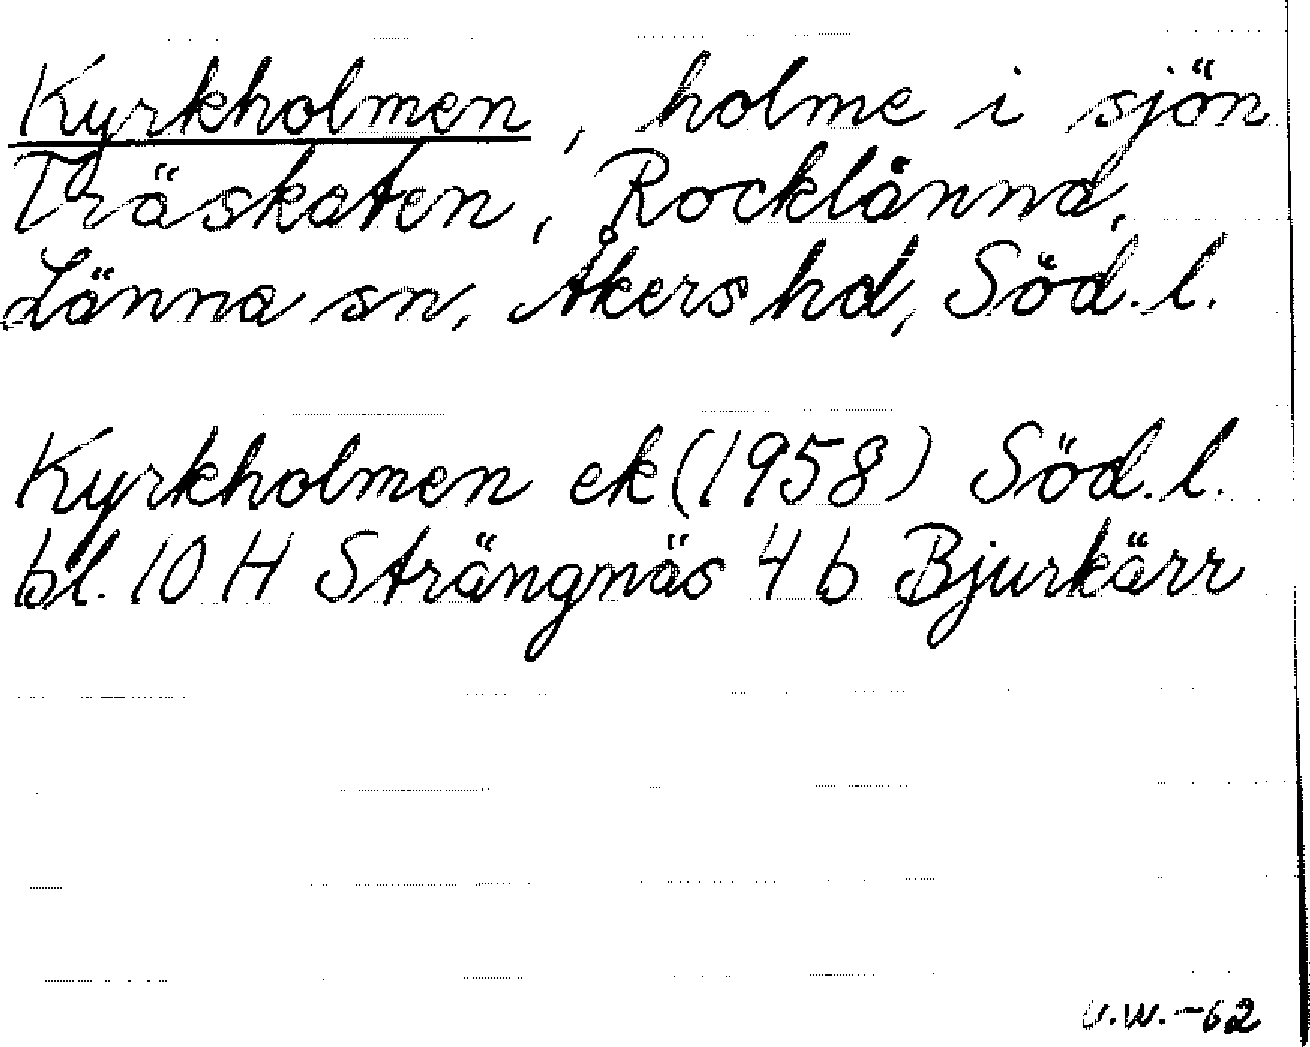 Kyrkholmen, holme i sjön
Träskaten, Rocklänna,
Länna sn, Åkers hd, Söd.l.
Kyrkholmen ek (1958) Söd.l.
bl. 10 H Strängnäs 4 b Bjurkärr
U.W.-62